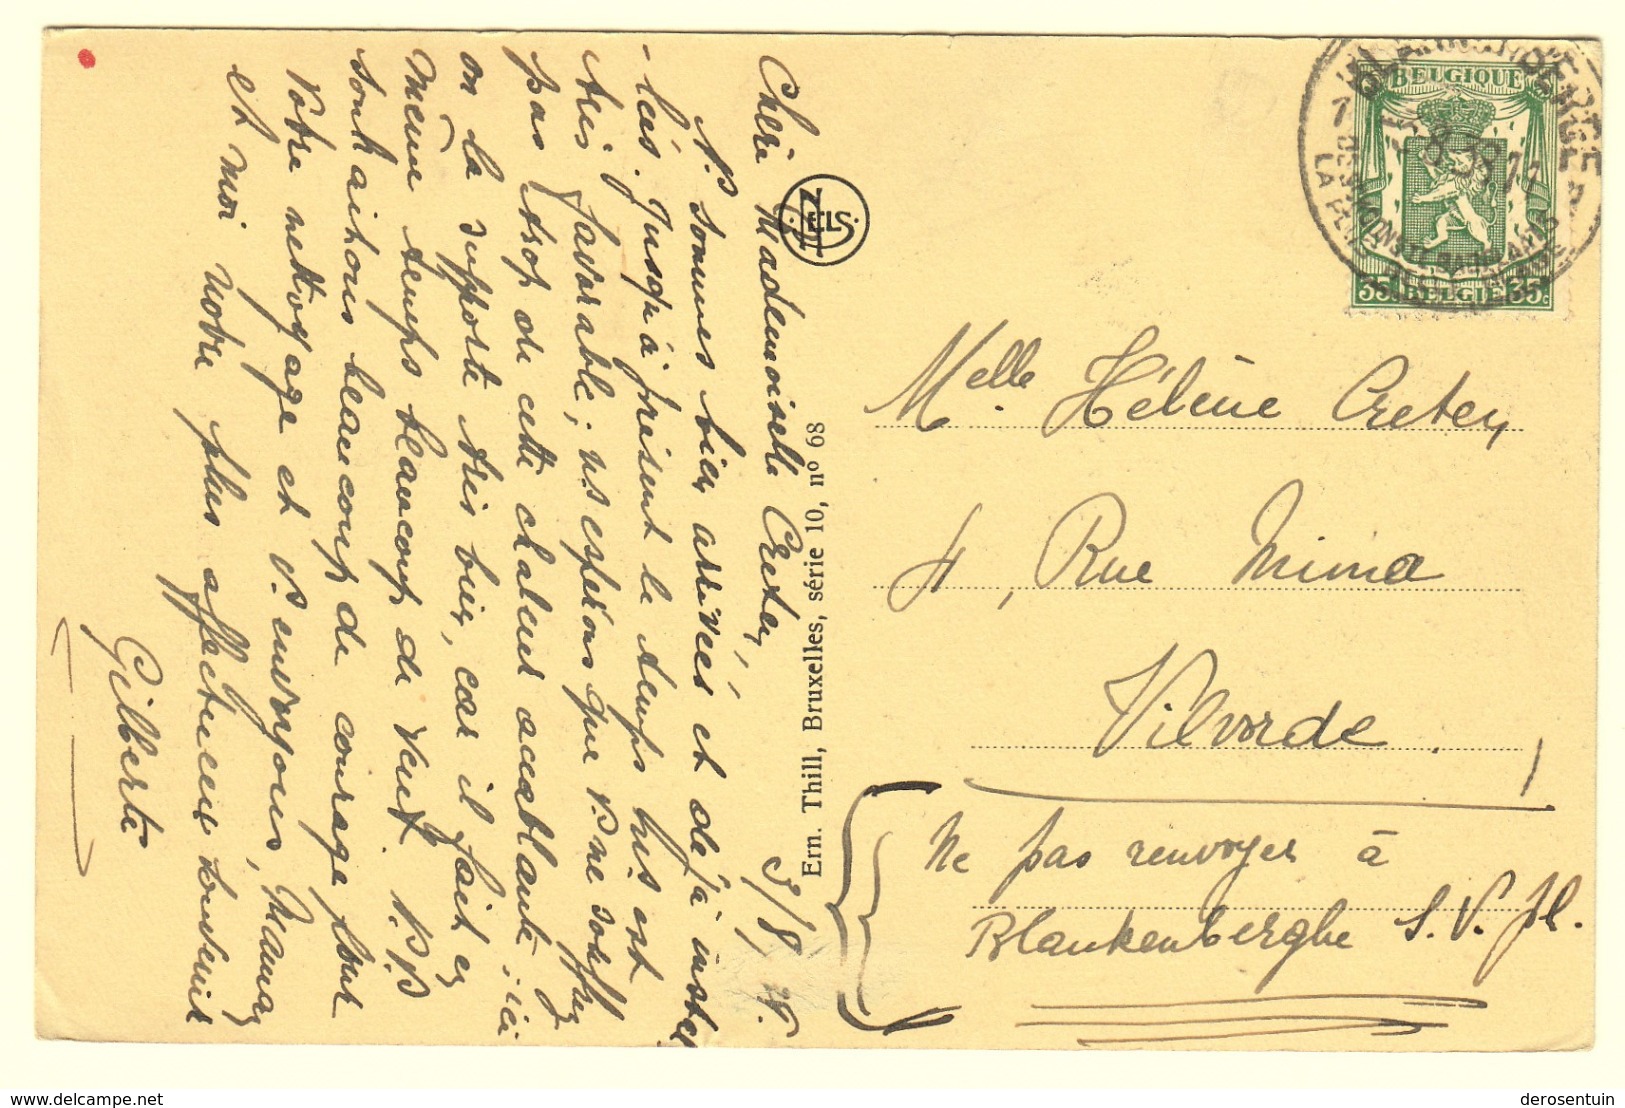 Chère Mademoiselle Creten,
3/8/38.
N.s sommes bien arrivées et déjà instal
-lées. Jusqu'à présent le temps n.s est
très favorable, n.s espérons que v.s ne souffrez
pas trop de cette chaleur accablante ; ici
on la supporte très bien, car il fait en
même temps beaucoup de vent. N.s v.s
souhaitons beaucoup de courage pour
votre nettoyage et v.s envoyons, Maman
et moi notre plus affectueux souvenir
Gilberte
NELS
Ern. Thill, Bruxelles, série 10, nº 68
BELGIQUE
35 BELGIE 35c
Melle Hélène Creten
4, Rue Mima
Vilvorde.
Ne pas renvoyer à
Blankenberghe S.V.pl.
delcampe.net
derosentuin